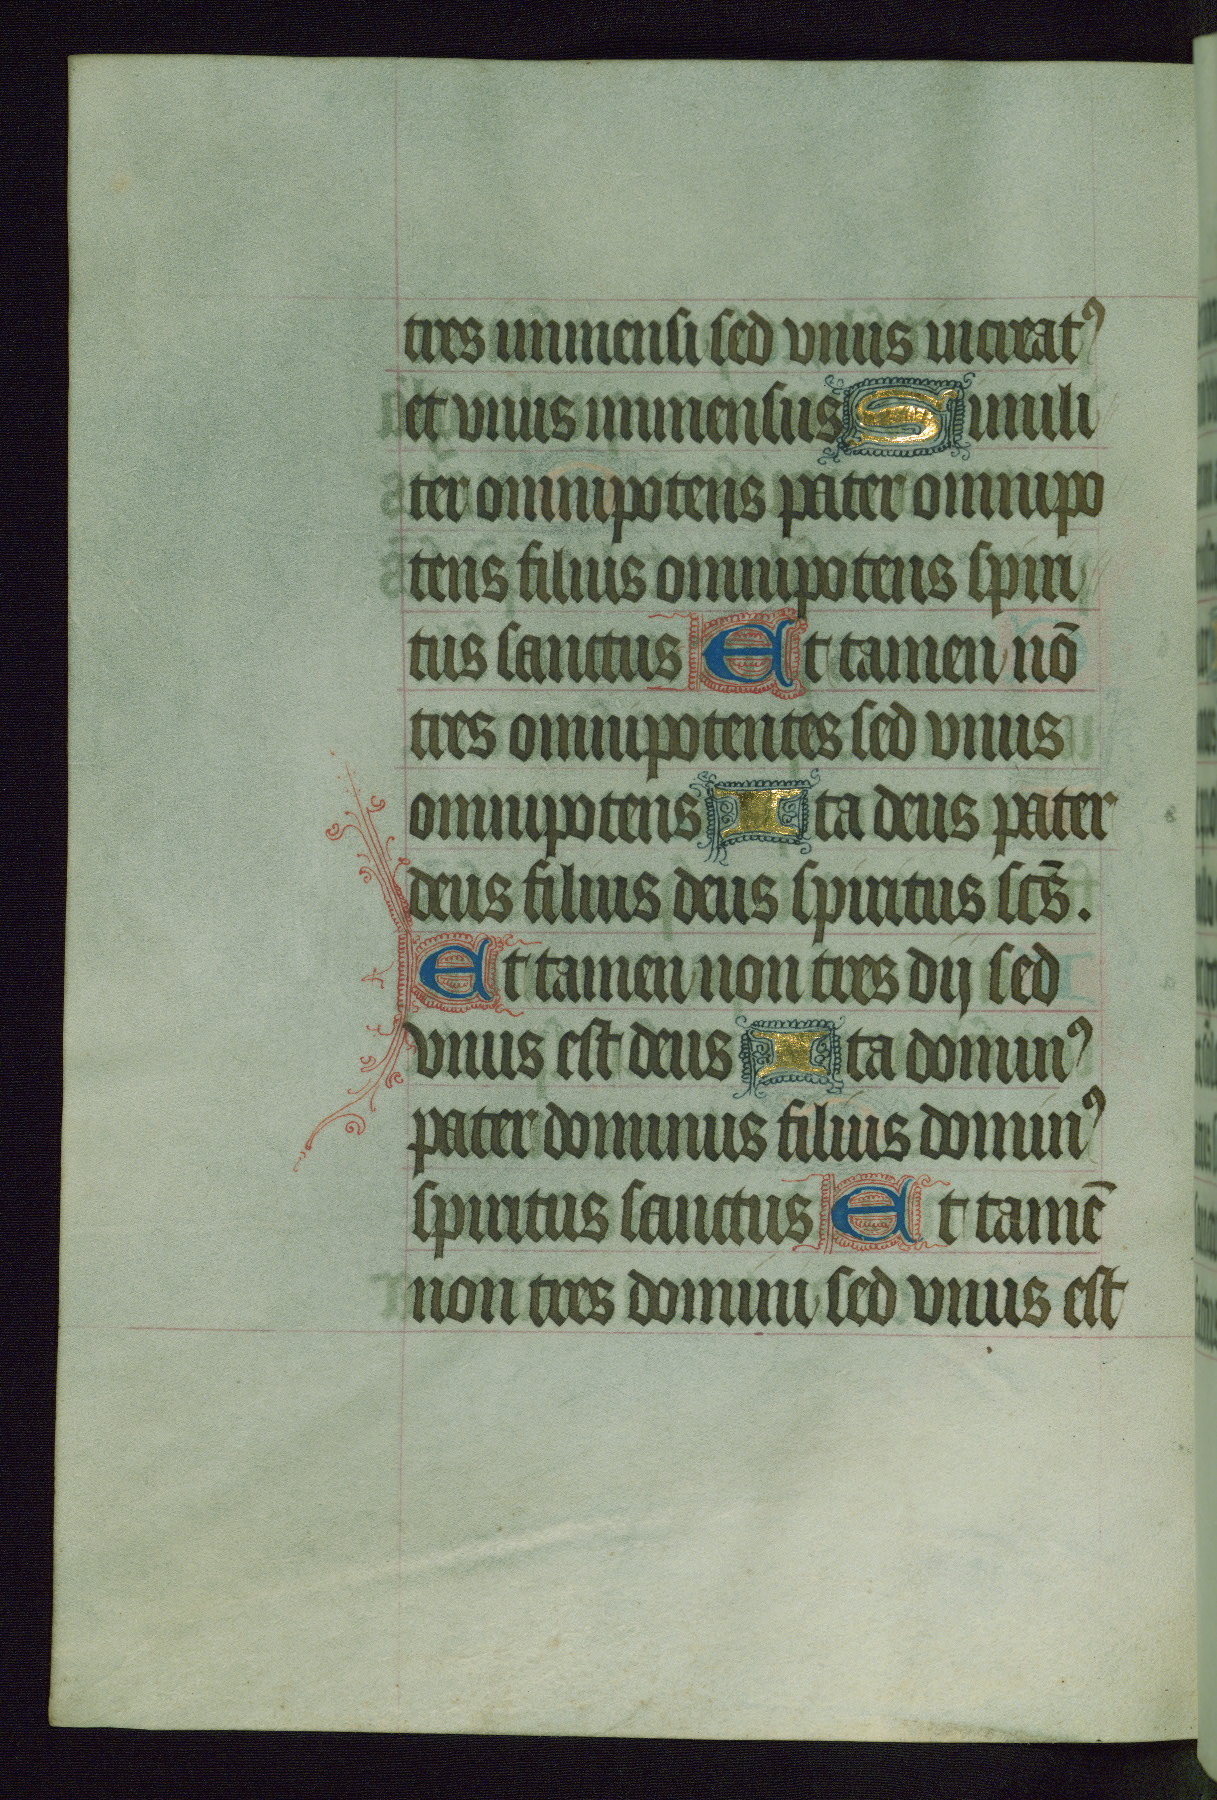 tres inmensi sed vnus increatꝰ
et vnus inmensus Simili
ter omnipotens pater omnipo
tens filius omnipotens spiri
tus sanctus Et tamen nō
tres omnipotentes sed vnus
omnipotens Ita deus pater
deus filius deus spiritus sc̄s.
Et tamen non tres dij sed
vnus est deus Ita dominꝰ
pater dominus filius dominꝰ
spiritus sanctus Et tamē
non tres domini sed vnus est